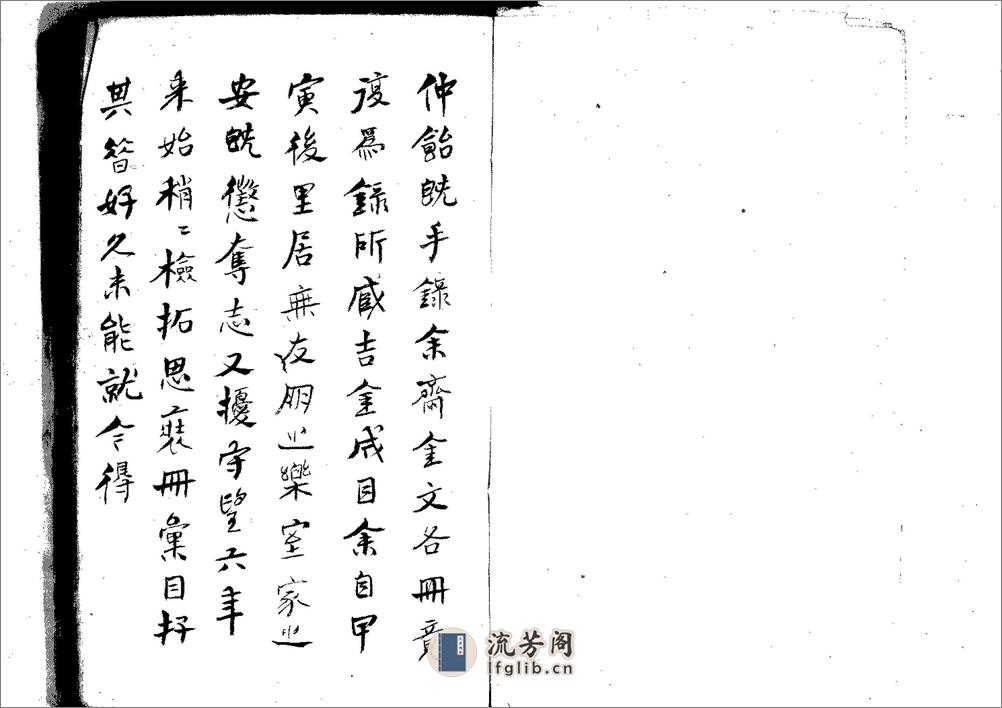 仲飴旣手錄余齋金文各冊竟
復爲錄所臧吉金成目余自甲
寅後里居無友朋㞢樂室家㞢
安旣懲奪志又擾守望六年
來始稍〻檢拓思裝冊彙目好
其簪好久未能就今得
流芳阁
lfglib.cn